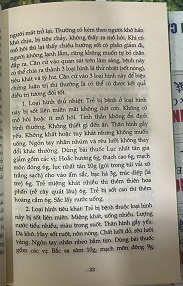 người mất trở lại. Thường có kèm theo người khô háo
khó chịu, bị tiêu chảy, không thấy ra mồ hôi. Khi có
mồ hôi thì lại thấy chiều hướng sốt có phần giảm đi,
người không lạnh lắm, cũng không muốn tự bế chân
đắp ra. Căn cứ vào quan sát trên lâm sàng, bệnh này
có thể chia ra thành 3 loại hình là thử nhiệt (sốt nóng),
tiêu khát và tỳ hư. Căn cứ vào 3 loại hình này để biện
chứng luận trị thì thường là có thể có được kết quả
điều trị tương đối tốt.
1. Loại hình thử nhiệt: Trẻ bị bệnh ở loại hình này
này bị sốt liên miên mãi không dứt cơn. Không có
mồ hôi hoặc ít mồ hôi. Tinh thần không ổn định
bình thường. Không thiết gì đến ăn. Thân hình gầy
yếu. Không khát hoặc tuy khát nhưng không muốn
uống. Ngón tay nhăn nhúm và rêu lưỡi không thay
đổi khác thường. Dùng bài thuốc Lục nhất tán gia
giảm gồm các vị: Hoắc hương 6g, thạch cao 6g, mạch
môn đông 6g, lục nhất tán 10g (gói trong túi vải sô
trắng sạch) cho vào ấm sắc, bạc hà 3g, trúc diệp (lá
tre) 6g. Trẻ miệng khát nhiều thì thêm thiên hoa
phấn (rễ cây quát lâu) 6g. Trẻ bị sốt cao thì thêm
hoàng cầm 6g. Sắc lấy nước uống.
2. Loại hình tiêu khát: Trẻ bị bệnh thuộc loại hình
này bị sốt liên miên. Miệng khát, uống nhiều. Lượng
nước tiểu nhiều, màu trong suốt. Thân hình gầy yếu.
Da khô. Hay sốt ruột, nôn nóng. Chất lưỡi đỏ, rêu lưỡi
vàng. Ngón tay nhăn nheo bầm tím. Dùng bài thuốc
gồm các vị: Bắc sa sâm 10g, mạch môn đông 9g,
33